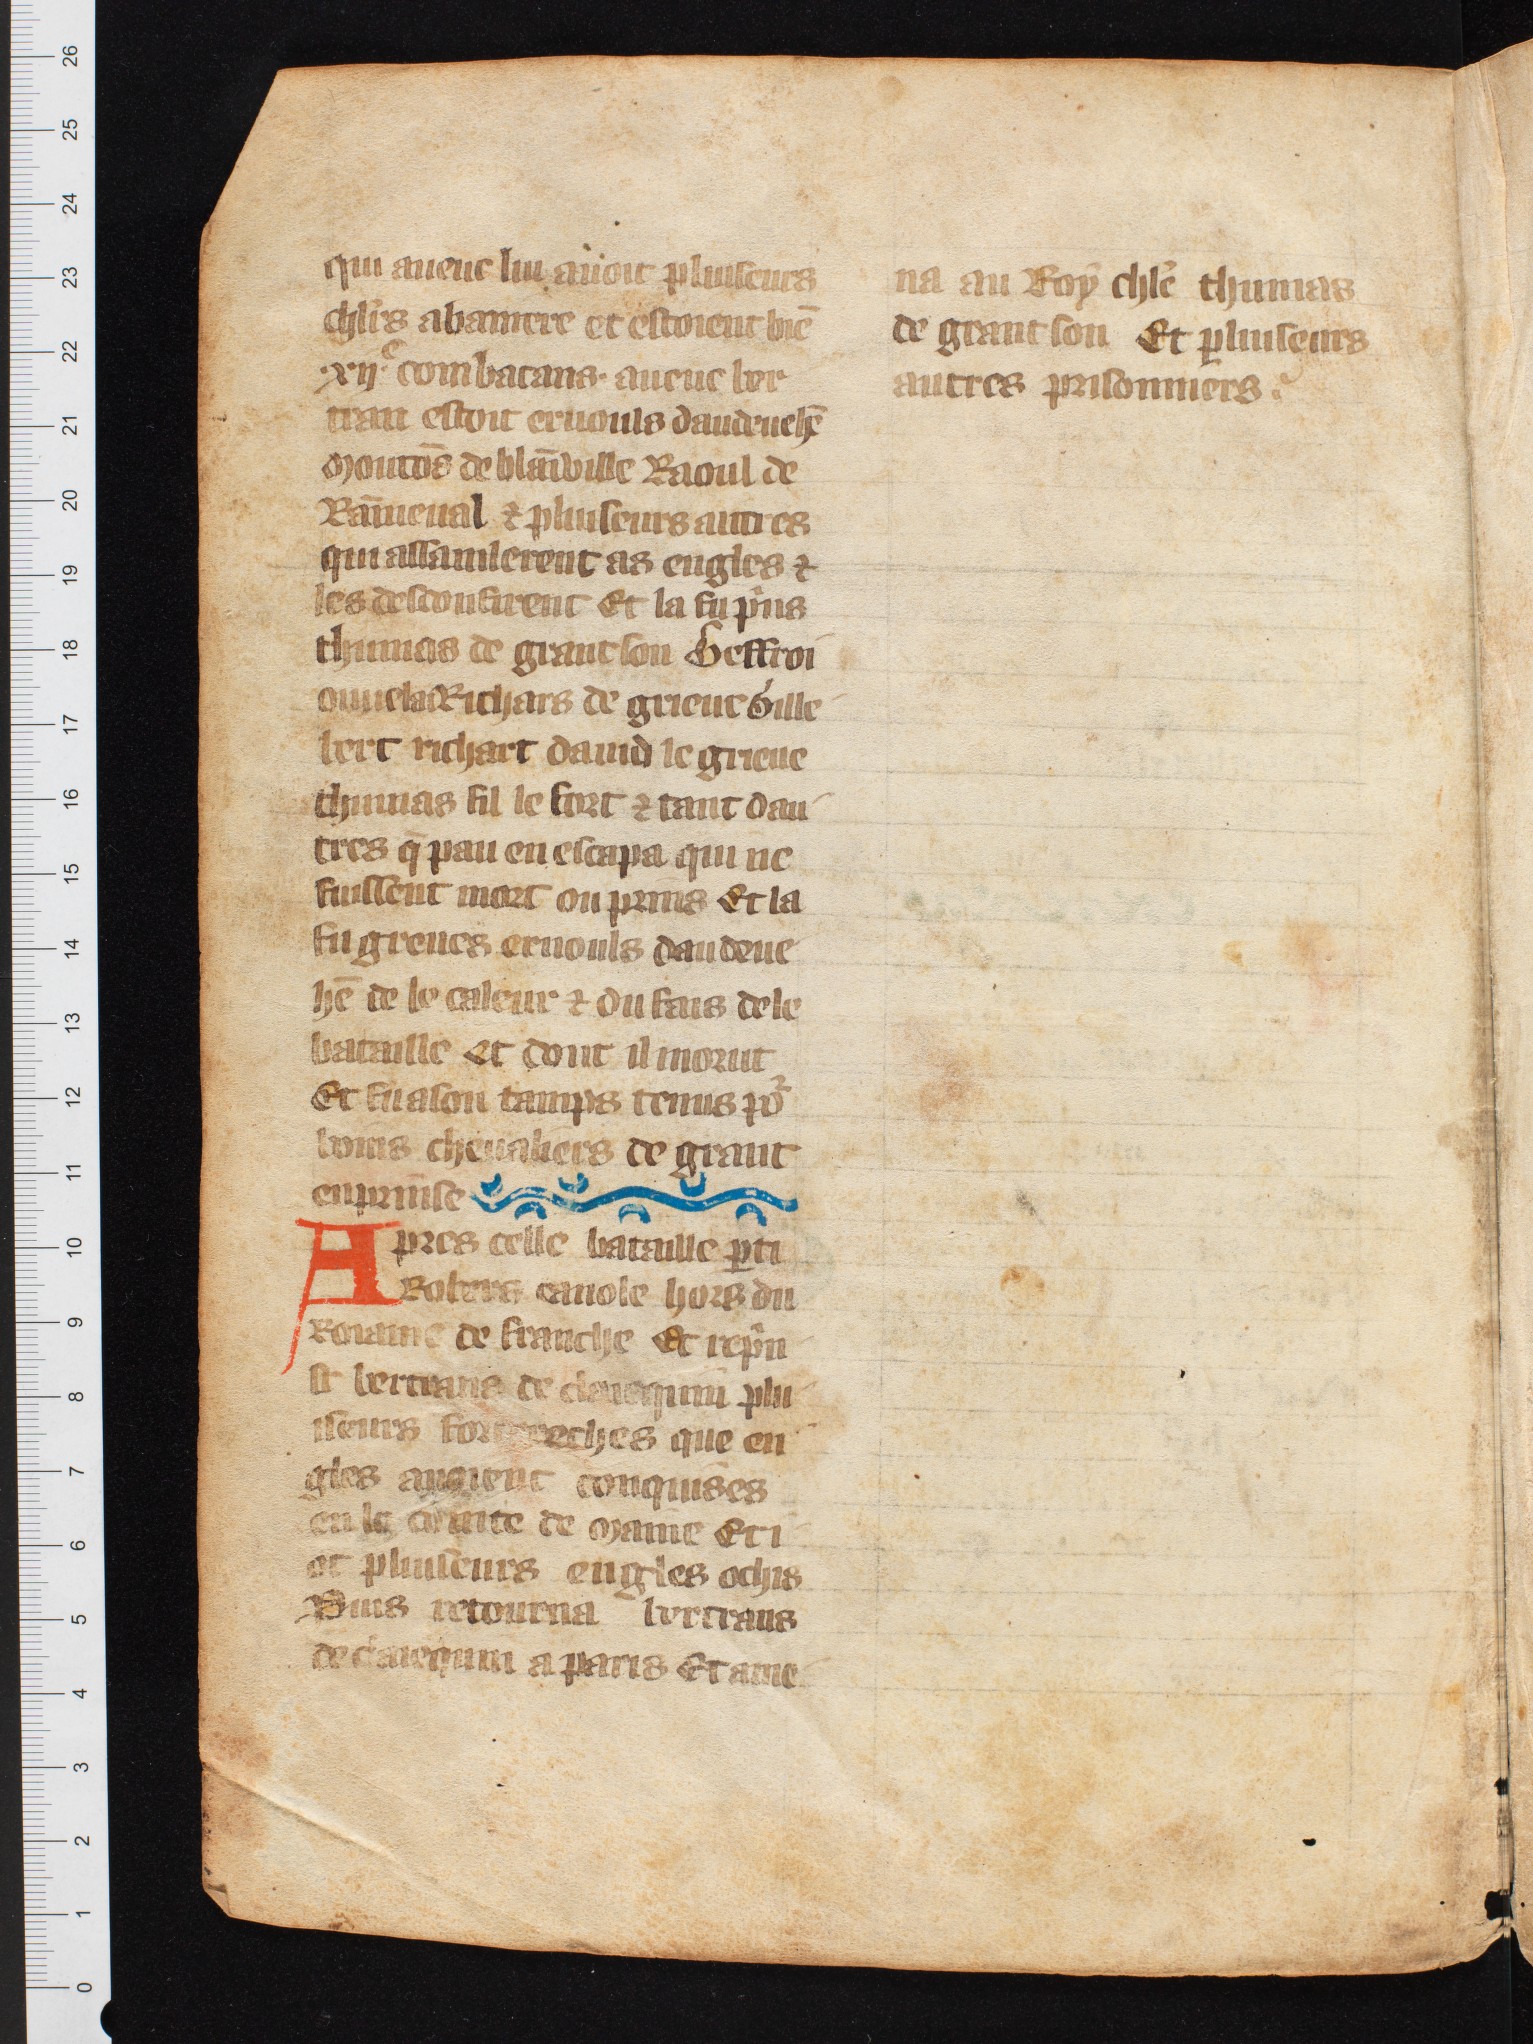 qui auenc lui auoit pluiseurs
chlr̄s abaniere et estoient biē
·xijᶜ· combatans· auenc ber
tran estoit ernouls daudenehē
moutōs de blāiuille Raoul de
Raīneual ⁊ pluiseurs autres
qui assamlerent as engles ⁊
les desconfirent Et la fu pͥns
thumas de grantson Geffroi
ouuelai Richars de grieue Gille
bert richart dauid le grieue
thumas fil le fort ⁊ tant dau
tres q̄ pau en escapa qui ne
fuissent mort ou prins Et la
fu greues ernouls daudene
hē de le caleur ⁊ du fais de le
bataille Et dont il morut
Et fu a son tamps tenus po᷑
boins cheualiers de grant
enprinse
Apres celle bataille ꝑti
Robers canole hors du
Roiame de franche Et repͥn
st bertrans de claiequin plu
iseurs forteresches que en
gles auoient conquises
en le conte de maine Et i
ot pluiseurs engles ochis
Puis retourna bertrans
de claiequin a paris Et ame
na au Roy chlr̄ thumas
de grantson Et pluiseurs
autres prisonniers.
26
25
24
23
22
21
20
19
18
17
16
15
14
13
12
11
10
9
8
7
6
5
4
3
2
1
0